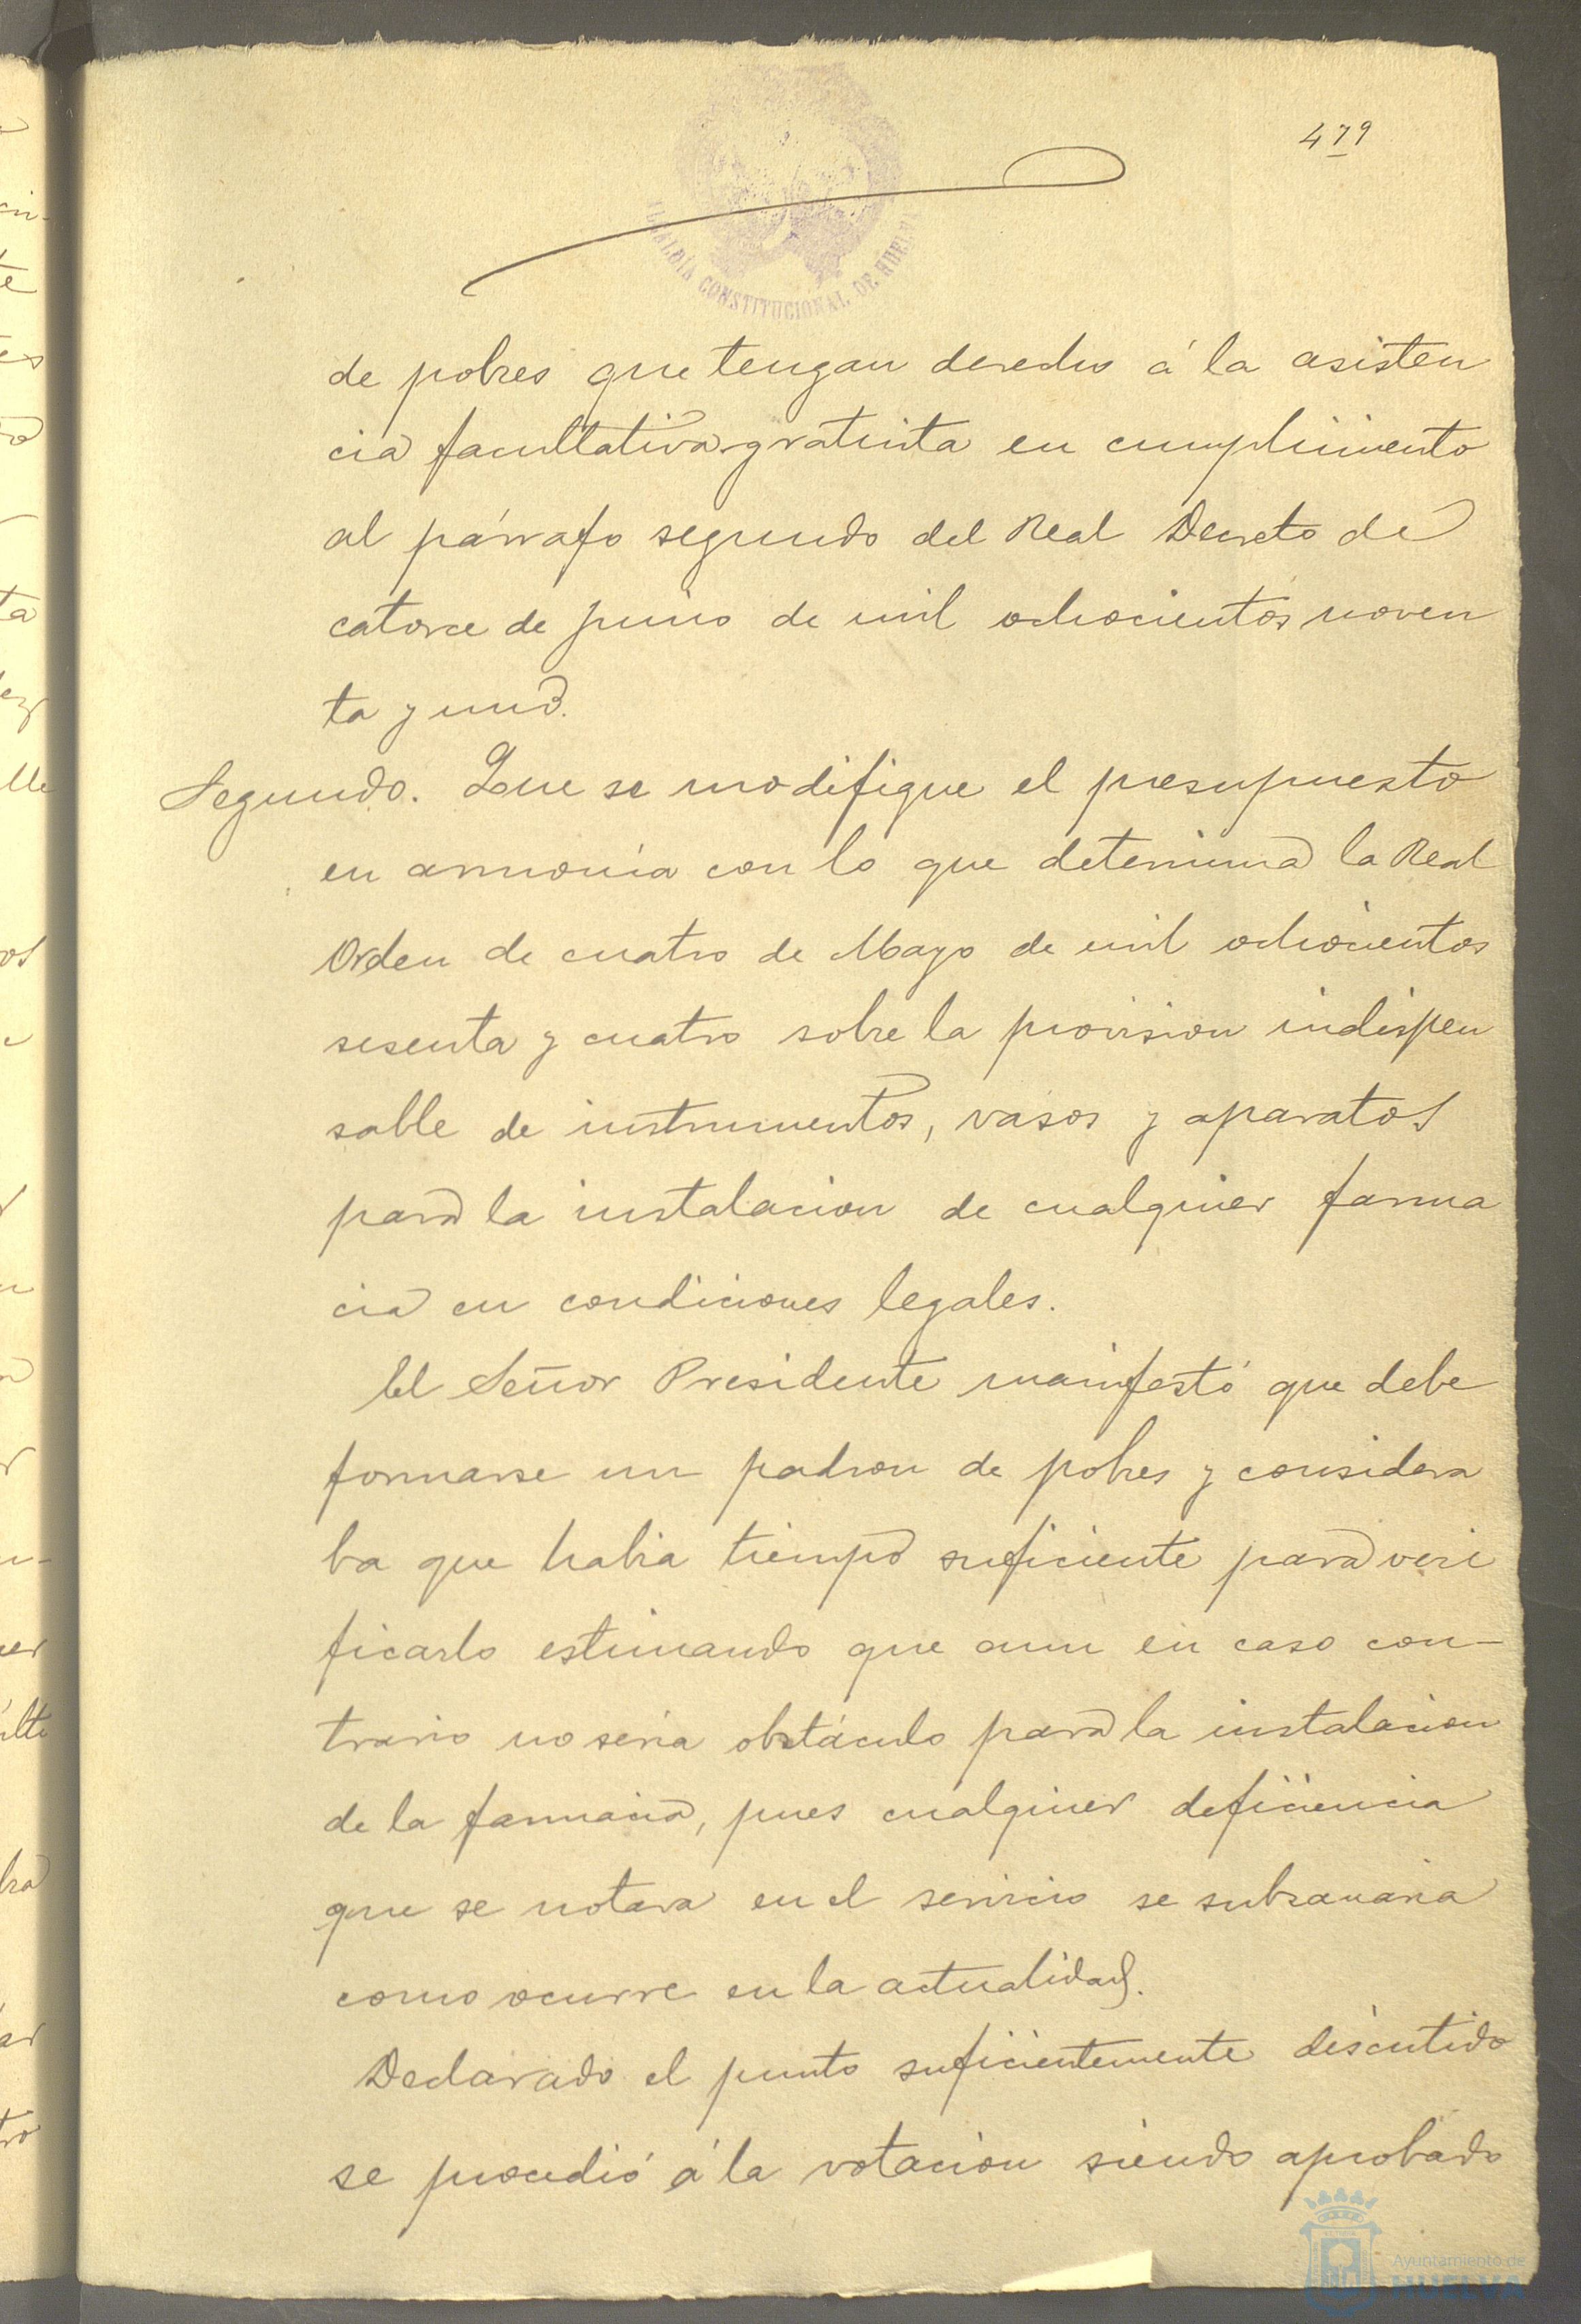 479
ALCALDÍA CONSTITUCIONAL DE HUELVA
de pobres que tengan derecho á la asisten
cia facultativa gratuita en cumplimiento
al párrafo segundo del Real Decreto de
catorce de junio de mil ochocientos noven
ta y uno.
Segundo. Que se modifique el presupuesto
en armonía con lo que determina la Real
Orden de cuatro de Mayo de mil ochocientos
sesenta y cuatro sobre la provision indispen
sable de instrumentos, vasos y aparatos
para la instalacion de cualquier farma
cia en condiciones legales.
El Señor Presidente manifestó que debe
formarse un padron de pobres y considera
ba que habia tiempo suficiente para veri
ficarlo estimando que aun en caso con-
trario no seria obstáculo para la instalacion
de la farmacia, pues cualquier deficiencia
que se notara en el servicio se subsanaria
como ocurre en la actualidad.
Declarado el punto suficientemente discutido
se procedió á la votacion siendo aprobado
Ayuntamiento de
HUELVA